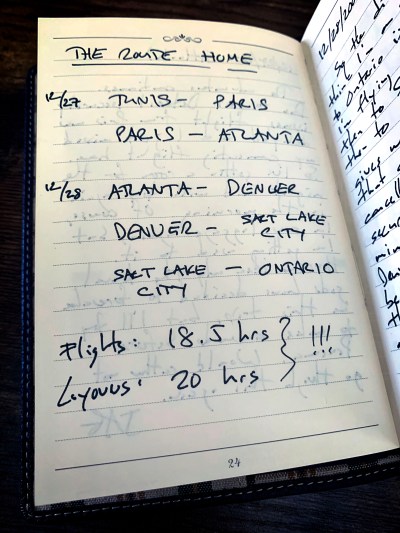 THE ROUTE HOME
12/27 TUNIS - PARIS
PARIS - ATLANTA
12/28 ATLANTA - DENVER
DENVER - SALT LAKE CITY
SALT LAKE CITY - ONTARIO
Flights: 18.5 hrs
Layovers: 20 hrs } !!!
24
12/29/20
So the di
think I
to Ontario i
flying
then to S
then to
gives w
that
cancell
secu
min
Den
be
th